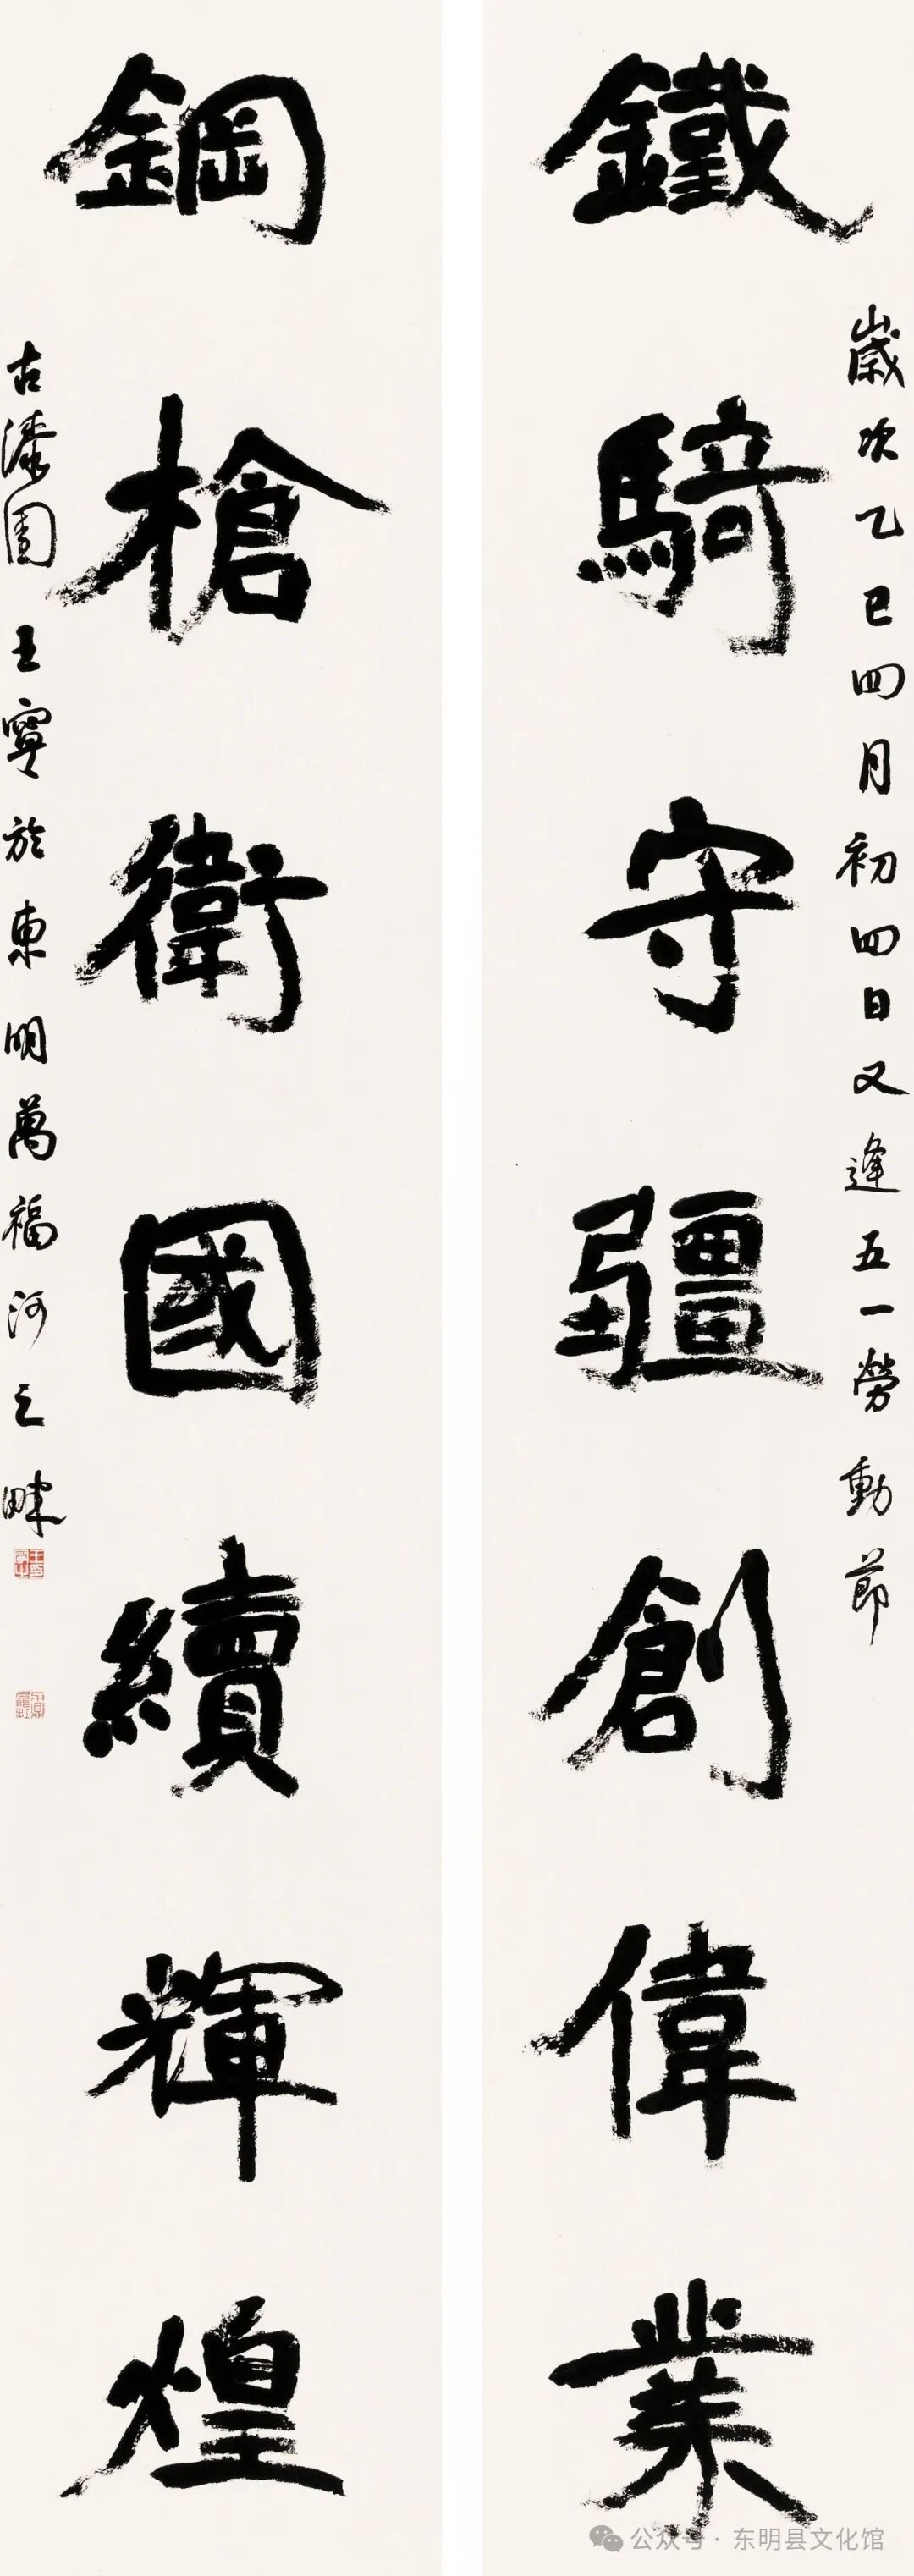 鐵騎守疆創偉業
歲次乙巳四月初四日又逢五一勞動節
鋼槍衛國續輝煌
古漆園王寧於東明萬福河之畔
公众号 · 东明县文化馆